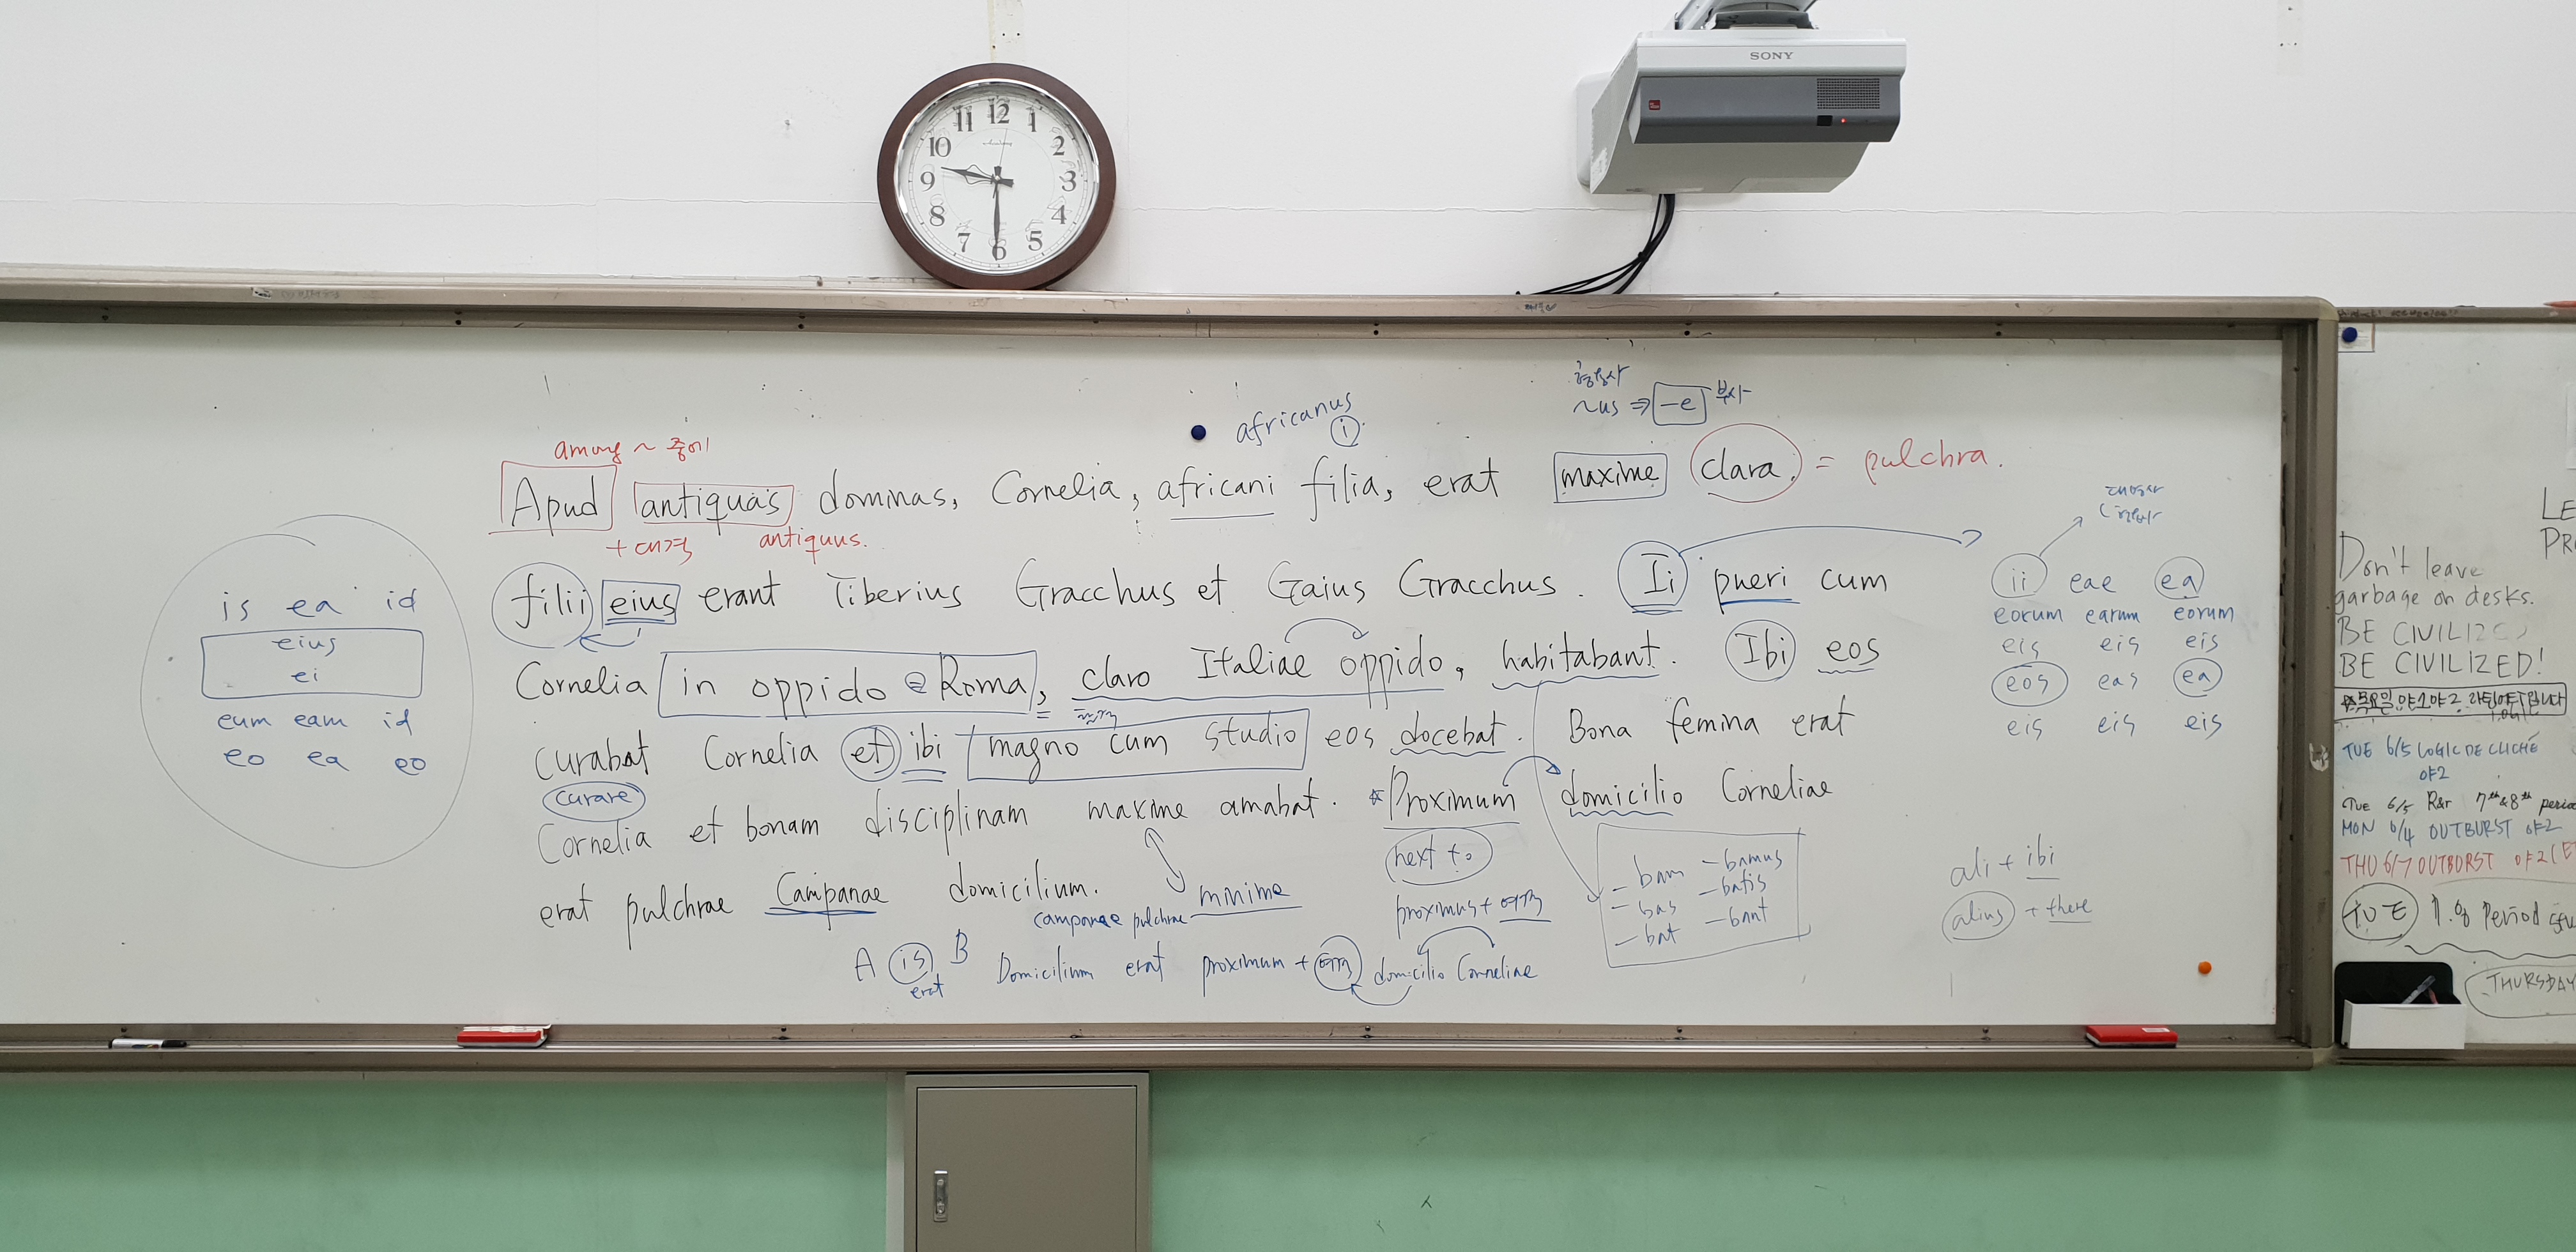 SONY
11 12 1
10 2
9 3
8 4
7 6 5
형용사
~us ⇒ -e 부사
africanus
i
among ~ 중에
Apud antiquas dominas, Cornelia, africani filia, erat maxime clara. = pulchra.
+ 대격 antiquus.
filii eius erant Tiberius Gracchus et Gaius Gracchus. Ii pueri cum
Cornelia in oppido Roma, claro Italiae oppido, habitabant. Ibi eos
curabat Cornelia et ibi magno cum studio eos docebat. Bona femina erat
curare
Cornelia et bonam disciplinam maxime amabat. *Proximum domicilio Corneliae
next to
erat pulchrae Campanae domicilium.
minime
campanae pulchrae
proximus + 여격
A is B Domicilium erat proximum + 여격 domicilio Corneliae
erat
is ea id
eius
ei
eum eam id
eo ea eo
대명사
형용사
ii eae ea
eorum earum eorum
eis eis eis
eos eas ea
eis eis eis
-bam -bamus
-bas -batis
-bat -bant
ali + ibi
alius + there
LE
PR
Don't leave
garbage on desks.
BE CIVILIZ
BE CIVILIZED!
TUE 6/5 LOGIC DE CLICHÉ
야2
TUE 6/5 R&r 7th & 8th perio
MON 6/4 OUTBURST 야2
THU 6/7 OUTBURST 야2 (E
TUE 7.8 Period
THURSDAY